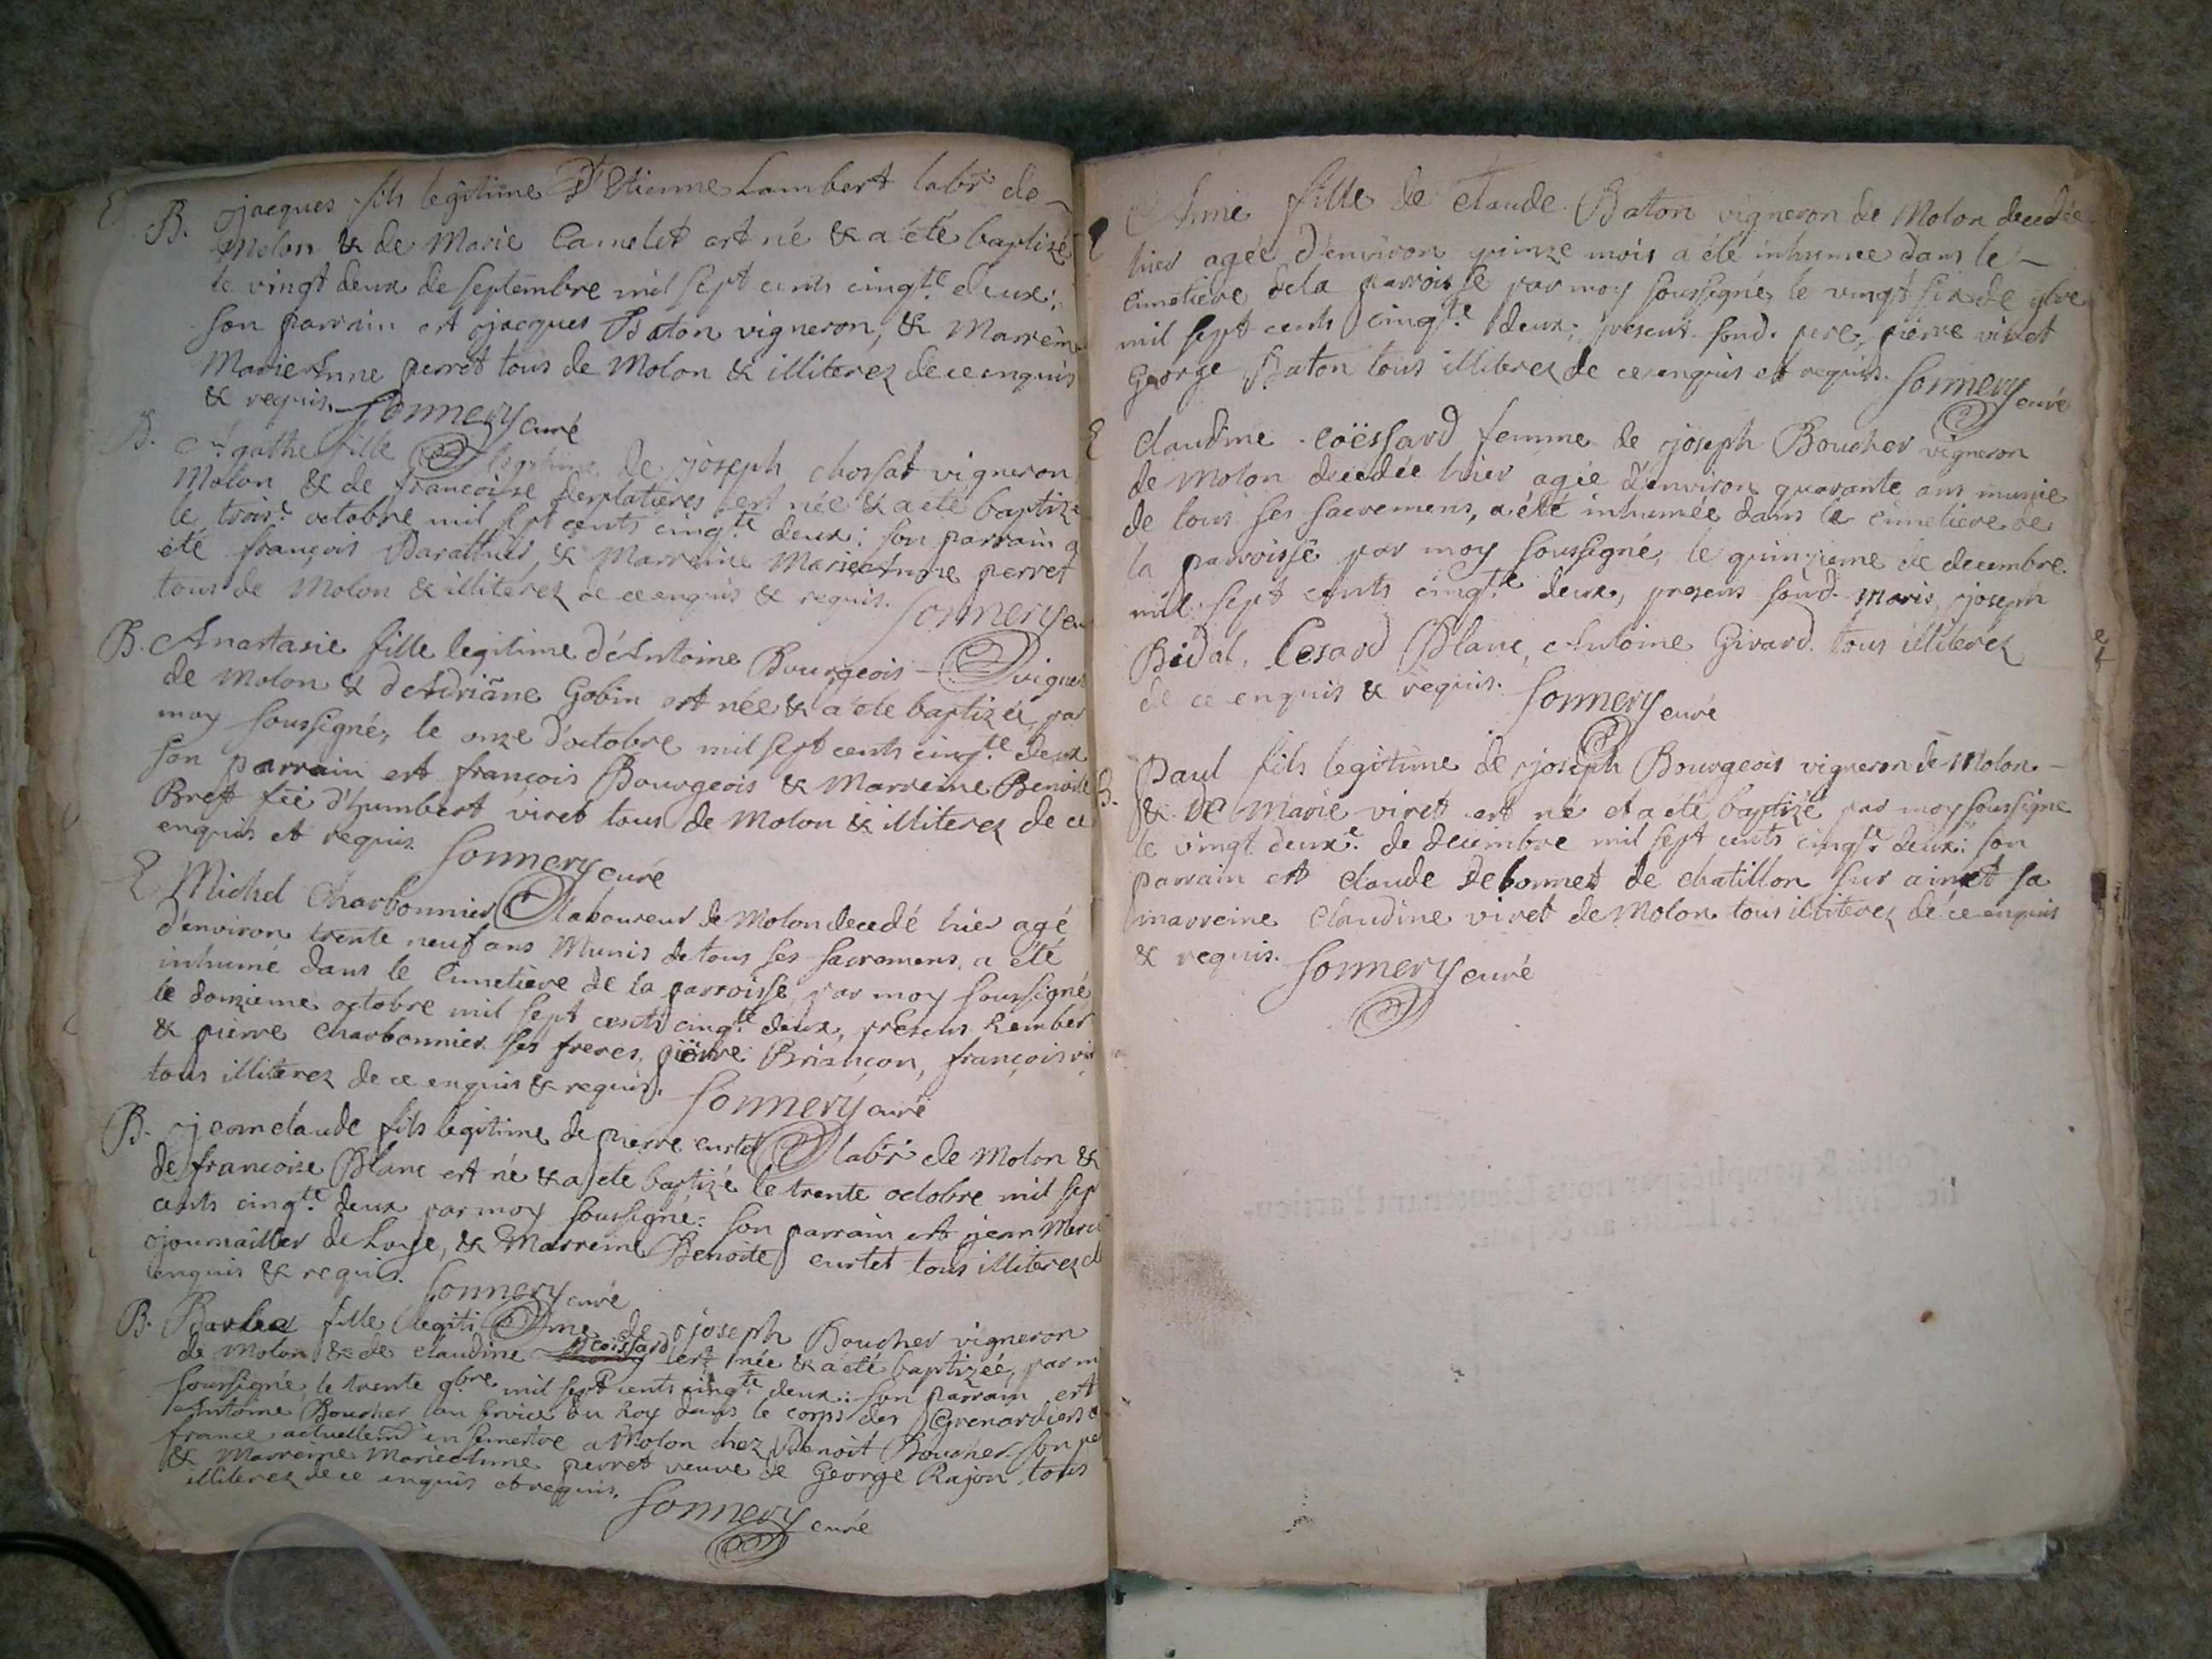 E
B. Jacques fils legitime d'Etienne Lambert labr. de
Molon & de Marie Camelet est né & a été baptizé
le vingt deux de septembre mil sept cents cinqte. deux:
son parrain est Jacques Baton vigneron, & Marreine
Marie Anne perret tous de Molon & illiterez de ce enquis
& requis. Sonnery curé
B. Agathe fille legitime de joseph chossat vigneron
Molon & de francoise desplatieres est née & a eté baptizé
le trois.e octobre mil sept cents cinq.te deux: son parrain a
été françois & Marreine Marie Anne perret
tous de Molon & illiterez de ce enquis & requis. Sonnery cu
B. Anastasie fille legitime d'Antoine Bourgeois vigner
de Molon & d'Adriane Gobin est née & a été baptizée par
moy soussigné, le onze d'octobre mil sept cents cinq.te deux
son parrain est françois Bourgeois & Marreine Benoite
Brest fée d'humbert viret tous de Molon & illiterez de ce
enquis et requis. Sonnery curé
E Michel Charbonnier laboureur de Molon decedé hier agé
d'environ trente neuf ans Munis de tous ses sacremens, a été
inhumé dans le Cimetiere de la parroisse, par moy soussigné
le douzieme octobre mil sept cents cinq.te deux, presens Rember
& pierre Charbonnier ses freres, pierre Briançon, françois vir
tous illiterez de ce enquis & requis. Sonnery curé
B. jeanclaude fils legitime de pierre curtet labr. de Molon &
de francoise Blanc est né & a eté baptizé le trente octobre mil sep
cents cinq.te deux par moy soussigné: son parrain est jean Merci
journallier de Loye, & Marreine Benoite curtet tous illiterez d
enquis & requis. Sonnery curé
B. fille legitime de joseph Boucher vigneron
de Molon & de claudine Coissard est née & a eté baptizée, par m
soussigné, le trente 9bre mil sept cents cinq.te deux: son parrain est
Antoine Boucher au service du Roy dans le corps des Grenardiers d
france actuellem.t en semestre a Molon chez Benoit Boucher son pe
& Marreine Marie Anne perret veuve de George Rajon, tous
illiterez de ce enquis et requis. Sonnery curé
E Anne fille de claude Baton vigneron de Molon decedée
hier agée d'environ quinze mois a été inhumée dans le
cimetiere de la parroisse par moy soussigné, le vingt six de 9bre
mil sept cents cinq.te deux; present sond. pere, pierre viret
George Baton tous illiterez de ce enquis et requis. Sonnery curé
E claudine coëssard femme de joseph Boucher vigneron
de Molon decedée hier agée d'environ quarante ans munie
de tous ses sacremens, a été inhumée dans le cimetiere de
la parroisse par moy soussigné, le quinzieme de decembre
mil sept cents cinq.te deux, presens sond. Maris, joseph
Bidal, Cesard Blanc, Antoine Girard. tous illiterez
de ce enquis & requis. Sonnery curé
B. Paul fils legitime de joseph Bourgeois vigneron de Molon
& de Marie viret est né et a été baptizé par moy soussigné
le vingt deux.e de decembre mil sept cents cinq.te deux: son
parrain est claude debonnet de chatillon sur ain et sa
marreine claudine viret de Molon tous illiterez de ce enquis
& requis. Sonnery curé